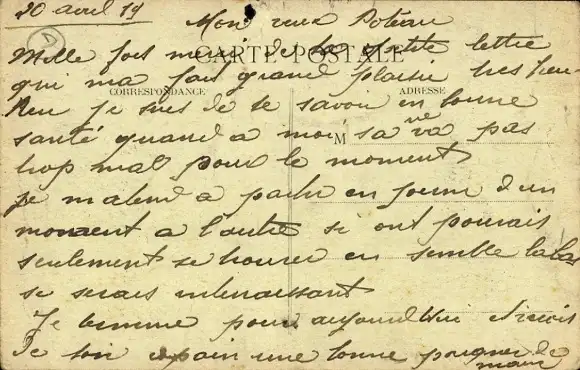 20 avril 19
Mon vieux Poteau
Mille fois merci de ta petite lettre
CARTE POSTALE
qui ma fait grand plaisir tres heu-
CORRESPONDANCE
ADRESSE
Reu je suis de te savoir en bonne
santé quand a moi sa ne va pas
M
trop mal pour le moment
je matend a partir en perm d'un
moment a l'autre si ont pouvais
seulement se trouver en semble labas
se serais interressant
Je termine pour aujourdhui
de ton copain une bonne poignée de
main